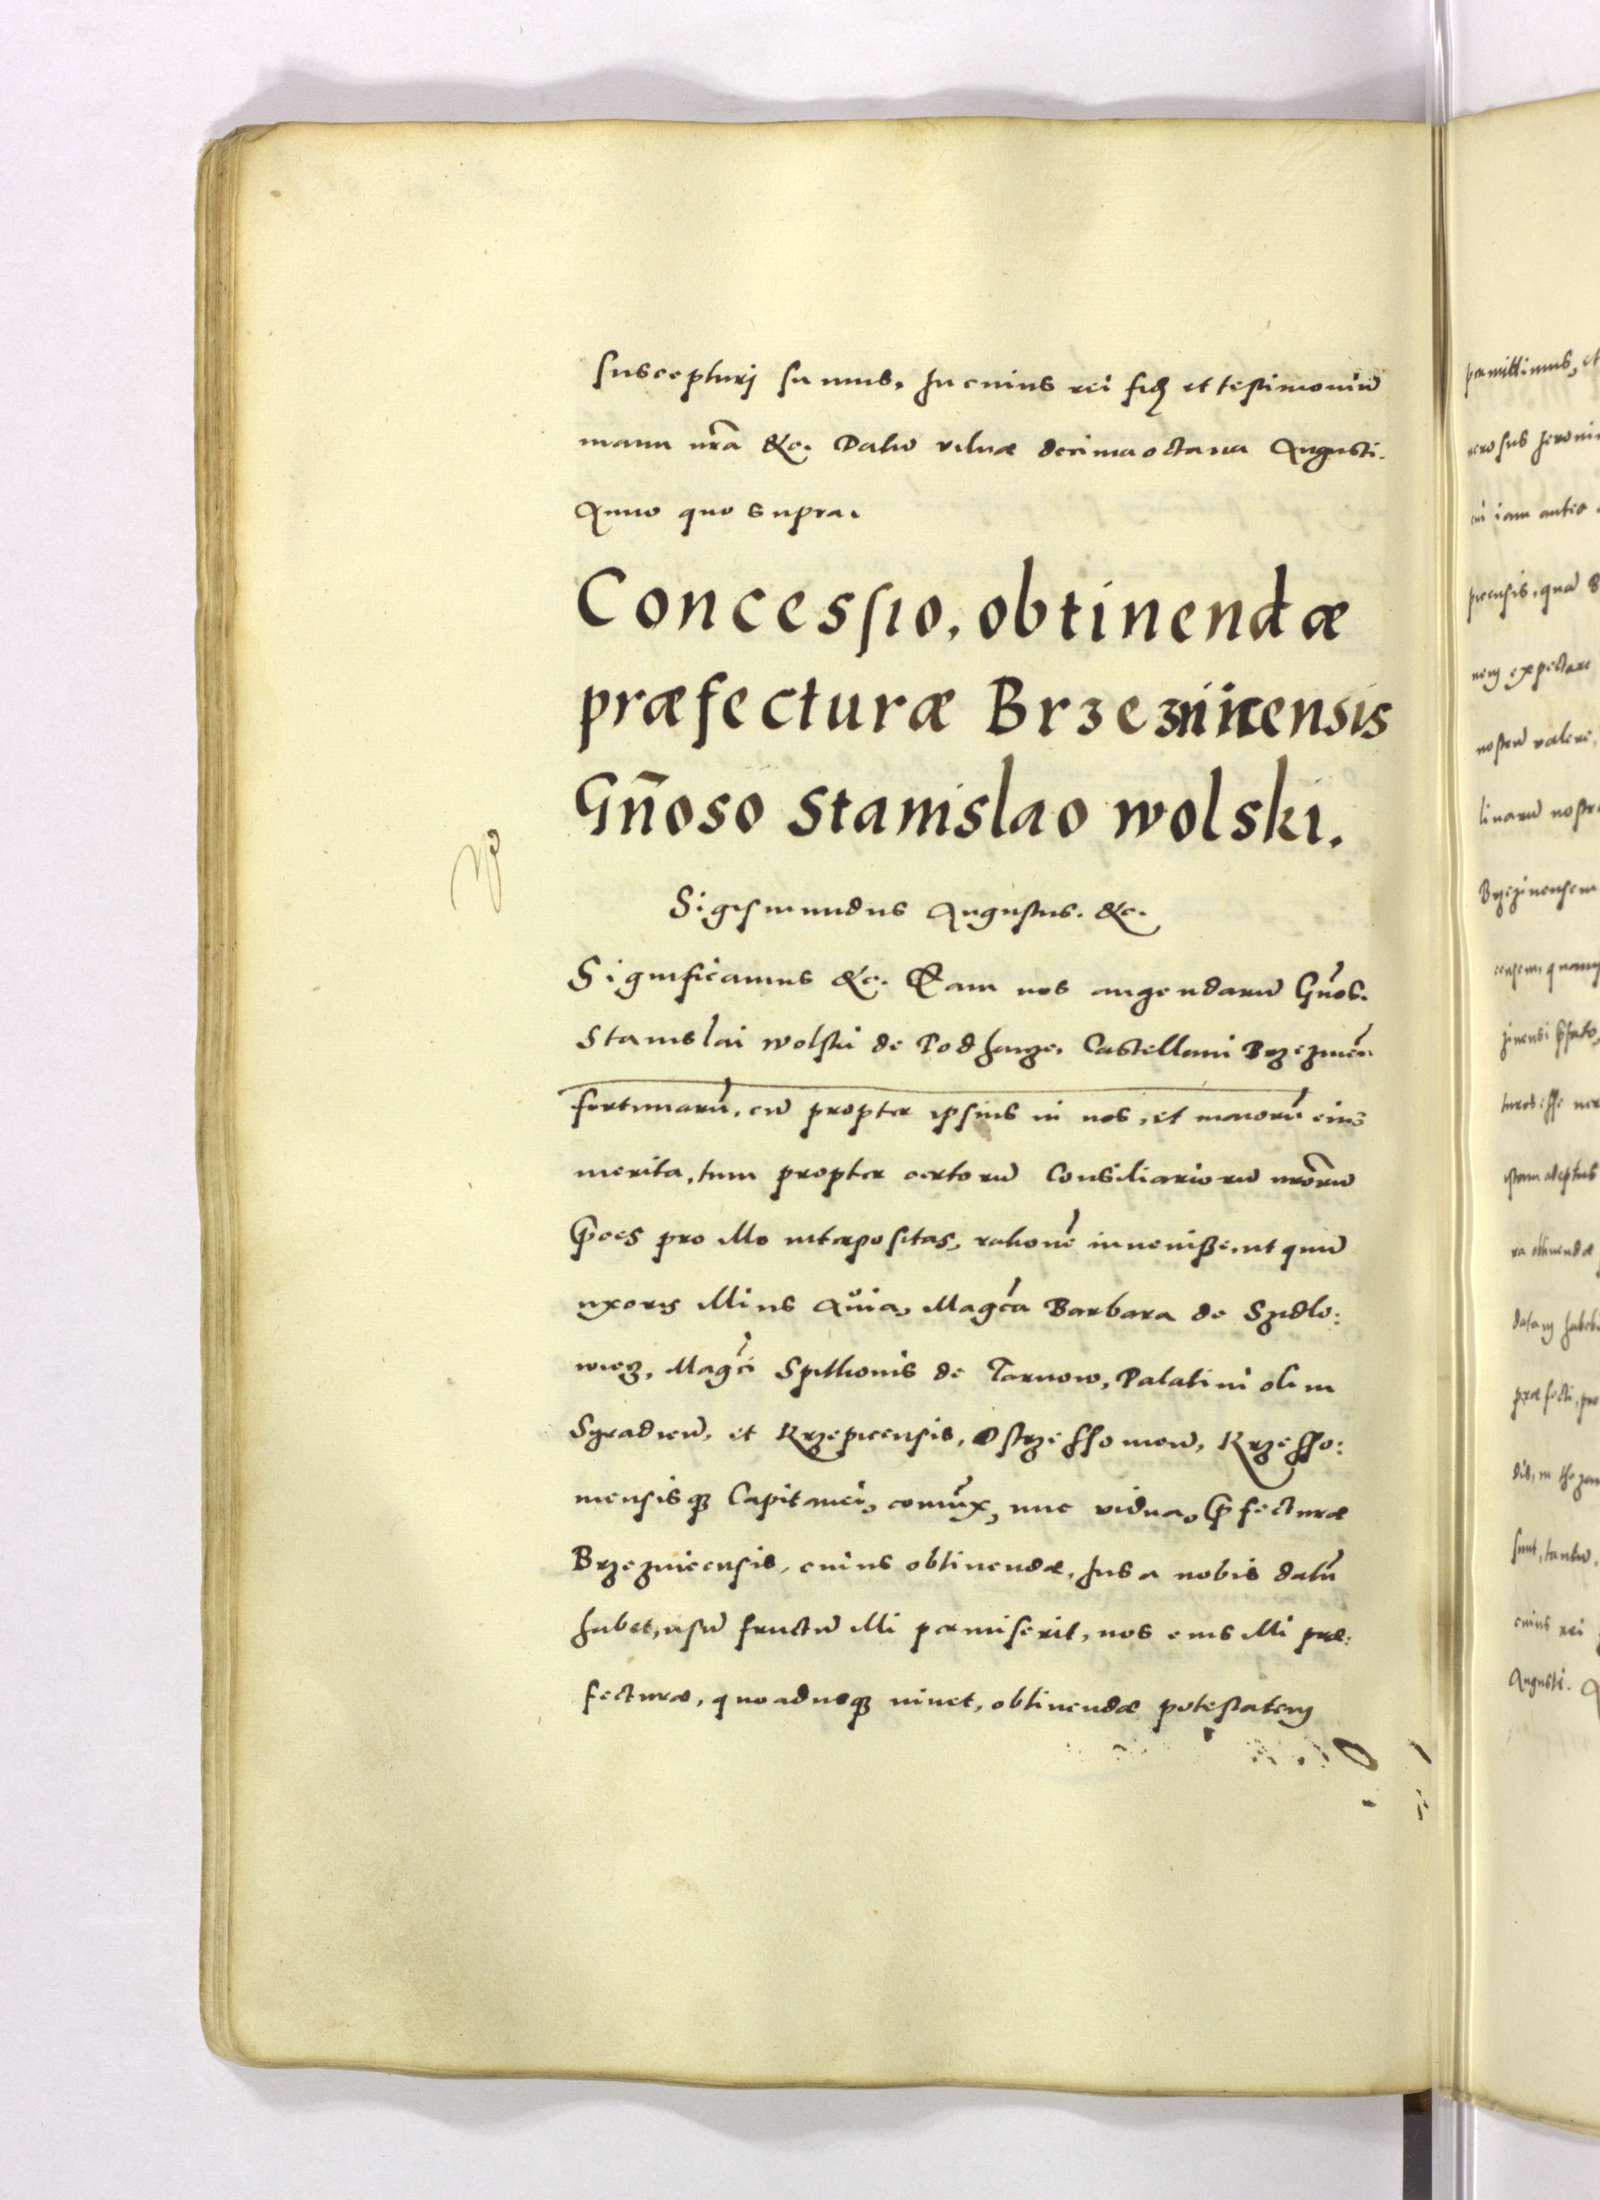 suscepturj sumus. In cuius rei fidẽ et testimoniũ
manu nr̃a &c. Datũ vilnæ decimaoctaua Augusti.
Anno quo supra.
Concessio, obtinendæ
præfecturæ Brzeznicensis
Gñoso Stanislao wolski.
Sigismundus Augustus. &c.
Significamus &c. Eam nos augendarũ Gños.
Stanislai wolski de Podhayze. Castellani Brzezineñ
fortunarũ, cũ propter ipsius in nos, et maiorũ eius
merita, tum propter certorũ Consiliariorũ nr̃orũ
p̃ces pro illo interpositas, rationẽ inuenisse, ut quũ
uxoris illius Auia, Magc̃a Barbara de Szidlo:
wiecz, Magc̃i Spithonis de Tarnow, Palatini olim
Syradieñ, et Krzepicensis, Ostrzeshowieñ, Krzesso:
wiensisq3 Capitanei, coniũx, nuc vidua, p̃fecturæ
Brzeznicensis, cuius obtinendæ, Jus a nobis datũ
habet, usũ fructũ illi permiserit, nos eius illi præ:
fecturæ, quoadusq3 uiuet, obtinendæ potestatem
permittimus, et
iam antea
expectare
Augusti.